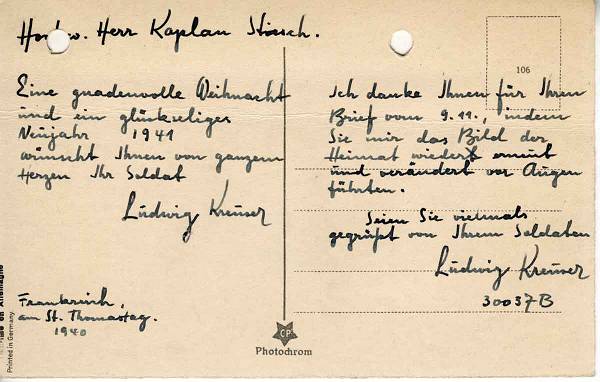 Hochw. Herr Kaplan
Eine gnadenvolle Weihnacht
und ein glückseliges
Neujahr 1941
wünscht Ihnen von ganzem
Herzen Ihr Soldat
Ludwig Kreuser
Frankreich,
am St. Thomastag.
1940
Printed in Germany
106
Ich danke Ihnen für Ihren
Brief vom 9.11., indem
Sie mir das Bild der
Heimat wieder
und verändert vor Augen
führten.
Seien Sie vielmals
gegrüßt von Ihrem Soldaten
Ludwig Kreuser
30037B
CP
Photochrom